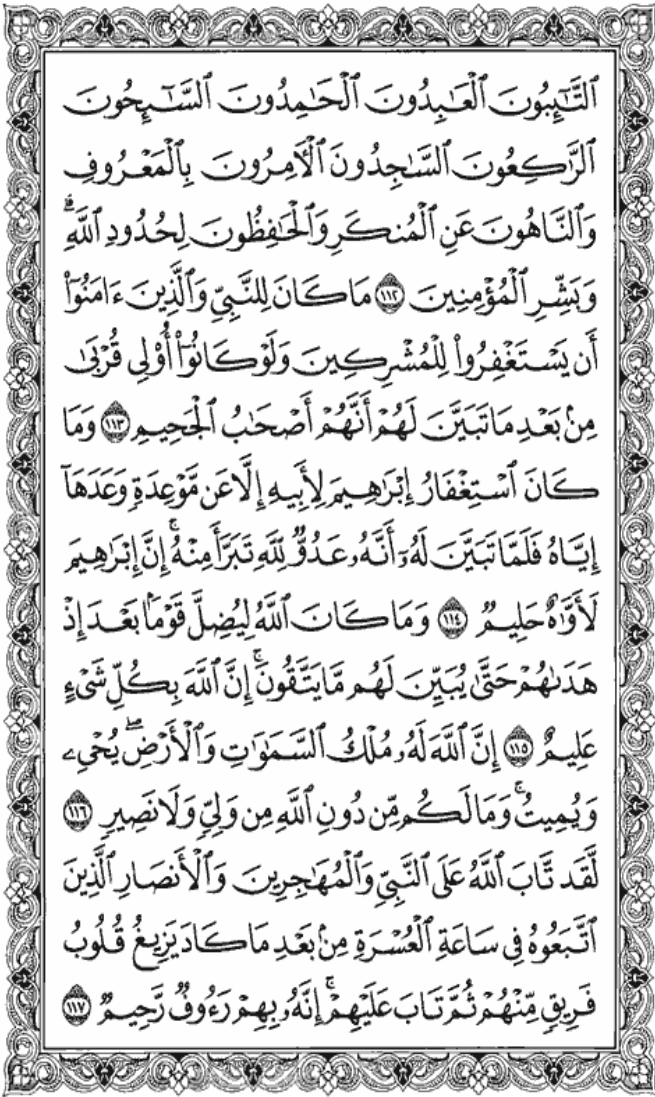 ٱلتَّٰٓئِبُونَ ٱلْعَٰبِدُونَ ٱلْحَٰمِدُونَ ٱلسَّٰٓئِحُونَ
ٱلرَّٰكِعُونَ ٱلسَّٰجِدُونَ ٱلْءَامِرُونَ بِٱلْمَعْرُوفِ
وَٱلنَّاهُونَ عَنِ ٱلْمُنكَرِ وَٱلْحَٰفِظُونَ لِحُدُودِ ٱللَّهِۗ
وَبَشِّرِ ٱلْمُؤْمِنِينَ ١١٢ مَا كَانَ لِلنَّبِىِّ وَٱلَّذِينَ ءَامَنُوٓا۟
أَن يَسْتَغْفِرُوا۟ لِلْمُشْرِكِينَ وَلَوْ كَانُوٓا۟ أُو۟لِى قُرْبَىٰ
مِنۢ بَعْدِ مَا تَبَيَّنَ لَهُمْ أَنَّهُمْ أَصْحَٰبُ ٱلْجَحِيمِ ١١٣ وَمَا
كَانَ ٱسْتِغْفَارُ إِبْرَٰهِيمَ لِأَبِيهِ إِلَّا عَن مَّوْعِدَةٍ وَعَدَهَآ
إِيَّاهُ فَلَمَّا تَبَيَّنَ لَهُۥٓ أَنَّهُۥ عَدُوٌّ لِّلَّهِ تَبَرَّأَ مِنْهُۚ إِنَّ إِبْرَٰهِيمَ
لَأَوَّٰهٌ حَلِيمٌ ١١٤ وَمَا كَانَ ٱللَّهُ لِيُضِلَّ قَوْمًۢا بَعْدَ إِذْ
هَدَىٰهُمْ حَتَّىٰ يُبَيِّنَ لَهُم مَّا يَتَّقُونَۚ إِنَّ ٱللَّهَ بِكُلِّ شَىْءٍ
عَلِيمٌ ١١٥ إِنَّ ٱللَّهَ لَهُۥ مُلْكُ ٱلسَّمَٰوَٰتِ وَٱلْأَرْضِۖ يُحْىِۦ
وَيُمِيتُۚ وَمَا لَكُم مِّن دُونِ ٱللَّهِ مِن وَلِىٍّ وَلَا نَصِيرٍ ١١٦
لَّقَد تَّابَ ٱللَّهُ عَلَى ٱلنَّبِىِّ وَٱلْمُهَٰجِرِينَ وَٱلْأَنصَارِ ٱلَّذِينَ
ٱتَّبَعُوهُ فِى سَاعَةِ ٱلْعُسْرَةِ مِنۢ بَعْدِ مَا كَادَ يَزِيغُ قُلُوبُ
فَرِيقٍ مِّنْهُمْ ثُمَّ تَابَ عَلَيْهِمْۚ إِنَّهُۥ بِهِمْ رَءُوفٌ رَّحِيمٌ ١١٧